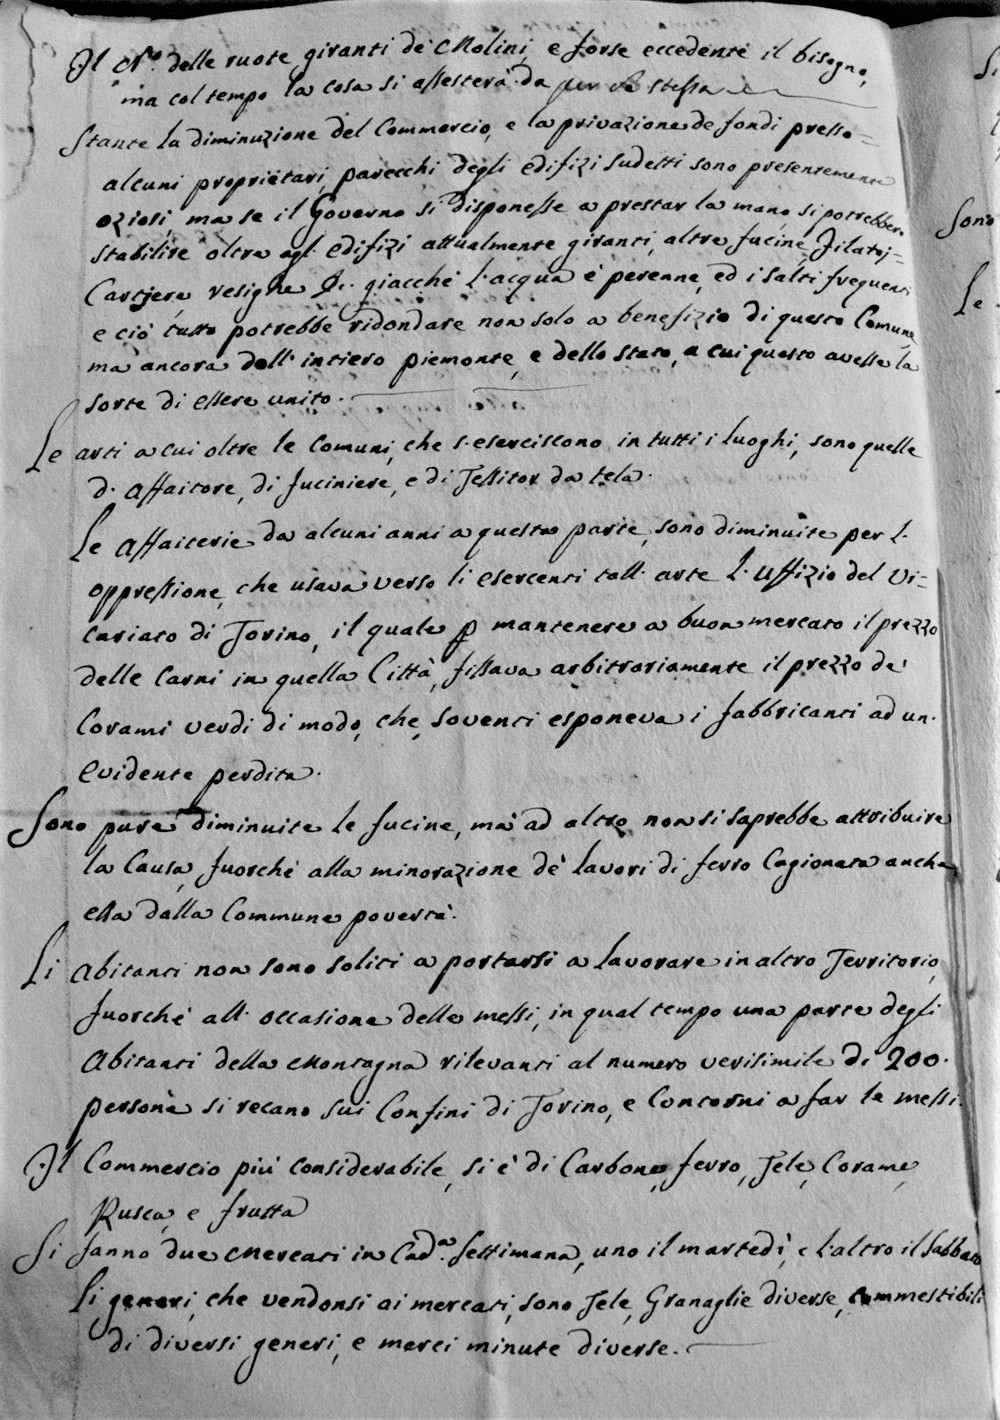 Il N.º delle ruote giranti de' Molini, e forse eccedente il bisogno,
ma col tempo la cosa si assesterà da per se stessa
Stante la diminuzione del Commercio, e la privazione de fondi presso=
alcuni proprietari, parecchi degli edifizi sudetti sono presentemente
oziosi, ma se il Governo si disponesse a prestar la mano, si potrebbero
stabilire oltre agl' edifizi attualmente giranti, altre fucine, Filatoj=
Cartjere, resighe &c. giacchè l'acqua è perenne, ed i salti frequenti
e ciò tutto potrebbe ridondare non solo a benefizio di questo Comune,
ma ancora dell' intiero piemonte, e dello Stato, a cui questo avesse la
sorte di essere unito.
Le arti a cui oltre le comuni, che s'eserciscono in tutti i luoghi, sono quelle
d'affaitore, di fuciniere, e di Tessitor da tela.
Le affaiterie da alcuni anni a questa parte, sono diminuite per l'
oppressione, che usava verso li esercenti tall' arte l'Uffizio del Vi=
cariato di Torino, il quale p mantenere a buon mercato il prezzo
delle Carni in quella Città, fissava arbitrariamente il prezzo de'
Corami verdi di modo, che, soventi esponeva i fabbricanti ad un'
evidente perdita.
Sono pure diminuite le fucine, mà ad altro non si saprebbe attribuire
la Causa, fuorchè alla minorazione de' lavori di ferro Cagionata anche
essa dalla Commune povertà.
Li abitanti non sono soliti a portarsi a lavorare in altro Territorio,
fuorchè all' occasione delle messi, in qual tempo una parte degli
Abitanti della Montagna rilevanti al numero verisimile di 200.
persone si recano sui Confini di Torino, e Contorni a far le messi.
Il Commercio più considerabile, si è di Carbone, ferro, Tele, Corame,
Rusca, e frutta
Si fanno due Mercati in Cad.ª Settimana, uno il martedì, e l'altro il Sabbato
Li generi, che vendonsi ai mercati, sono Tele, Granaglie diverse, commestibili
di diversi generi, e merci minute diverse.
Sono
Le